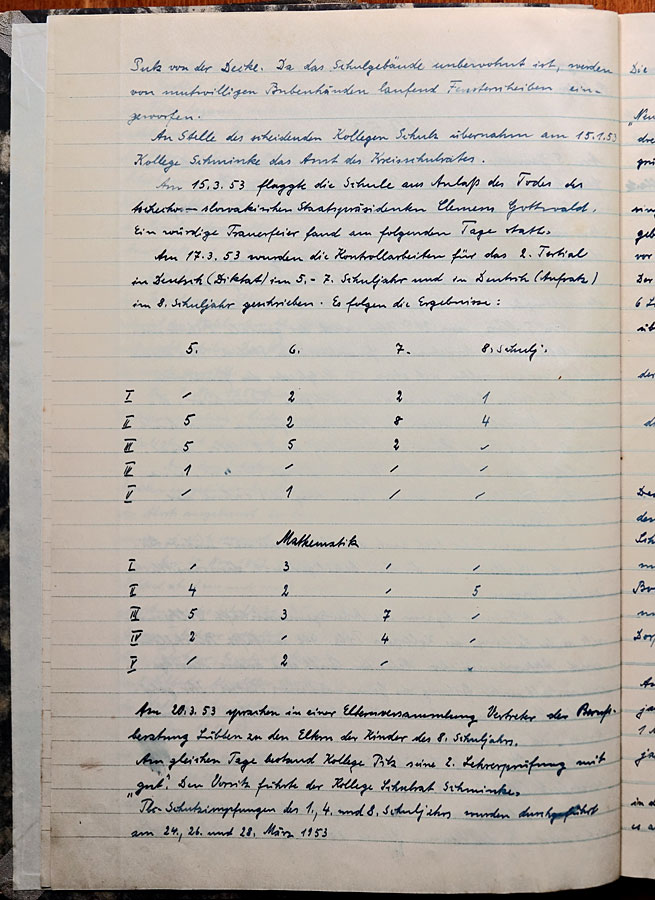 Putz von der Decke. Da das Schulgebäude unbewohnt ist, werden
von mutwilligen Bubenhänden laufend Fensterscheiben ein-
geworfen.
An Stelle des scheidenden Kollegen Schulz übernahm am 15.1.53
Kollege Schminke das Amt des Kreisschulrates.
Am 15.3.53 flaggte die Schule aus Anlaß des Todes des
tschecho-slowakischen Staatspräsidenten Clemens Gottwald.
Ein würdige Trauerfeier fand am folgenden Tage statt.
Am 17.3.53 wurden die Kontrollarbeiten für das 2. Tertial
in Deutsch (Diktat) im 5.-7. Schuljahr und in Deutsch (Aufsatz)
im 8. Schuljahr geschrieben. Es folgen die Ergebnisse:
5. 6. 7. 8. Schulj.
I / 2 2 1
II 5 2 8 4
III 5 5 2 /
IV 1 / / /
V / 1 / /
Mathematik
I / 3 / /
II 4 2 / 5
III 5 3 7 /
IV 2 / 4 /
V / 2 /
Am 20.3.53 sprachen in einer Elternversammlung Vertreter der Berufs-
beratung Lübben zu den Eltern der Kinder des 8. Schuljahrs.
Am gleichen Tage bestand Kollege Pitz seine 2. Lehrerprüfung mit
„gut". Den Vorsitz führte der Kollege Schulrat Schminke.
Tbc-Schutzimpfungen des 1., 4. und 8. Schuljahrs wurden durchgeführt
am 24., 26. und 28. März 1953
Die